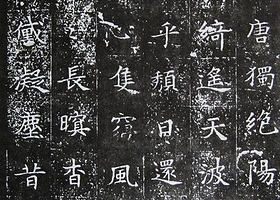 唐獨絕陽
綺遙天波
乎頹日還
心隻風
長暝杳
感凝塵昔